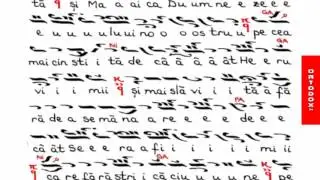 tă și M a a i c a D u u m n e e z e e e
GA GA
e u u u u l u u i n o o o s t r u u pe cea
NI
mai cin s t i i t ă de c ă â â â ât H e e ru
v i i i m i i și mai slă v i i i t ă a fă
PA
ră d e a s e m ă n a r e e e e d e e e
c â ât S e e e r a f i i i i i i m i i i
NI GA
c a r e f ă r ă s t r i i c ă c i u u u u n e pe
ORTODOX